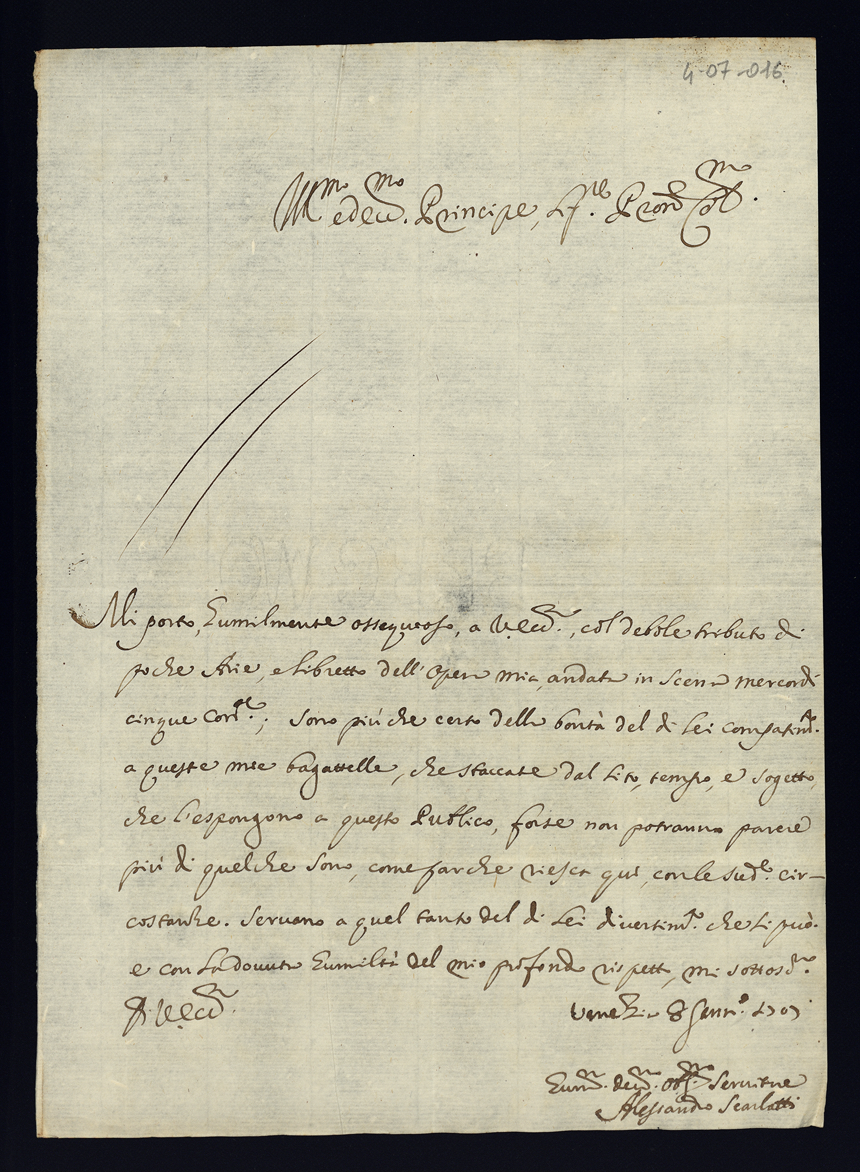 4-07-016.
Ill.mo ed ecc.mo Principe, Sig.re Pron Col.mo
Mi porto, humilmente ossequioso, a V. ecc.a, col debole tributo di
poche Arie, e libretto dell'Opera mia, andata in scena mercordì
cinque Corr.te; sono più che certo della bontà del di lei compatim.to
a queste mie bagattelle, che staccate dal sito, tempo, e sogetto,
che l'espongono a questo Publico, forse non potranno parere
più di quelche sono, come par che riesca qui, con le sud.e cir-
costanze. Servano a quel tanto del di Lei divertim.to che si può.
e con la dovuta humiltà del mio profondo rispetto, mi sottos.o
Di V. ecc.a
Venezia 8 Genn.o 1707
Hum.o dev.o obl.mo Servitore
Alessandro Scarlatti